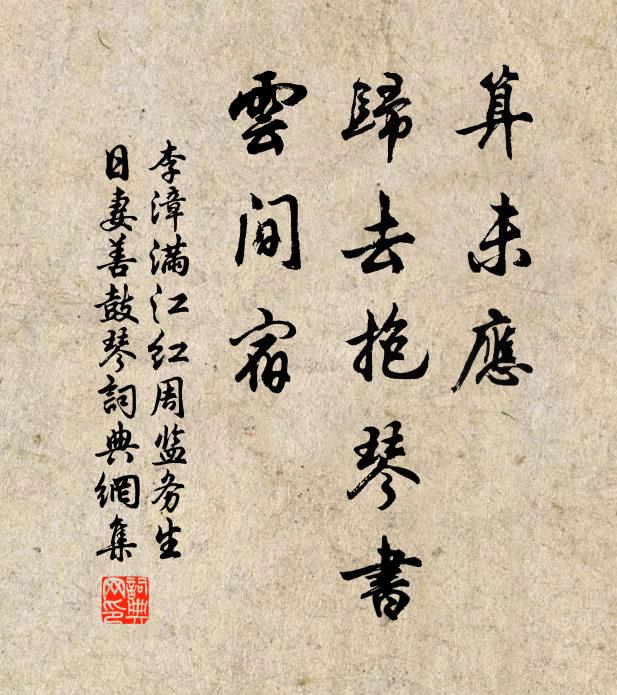 算未應
歸去抱琴書
雲間宿
李漳滿江红周监务生
日妻善鼓琴詞典網集
詞典
网印